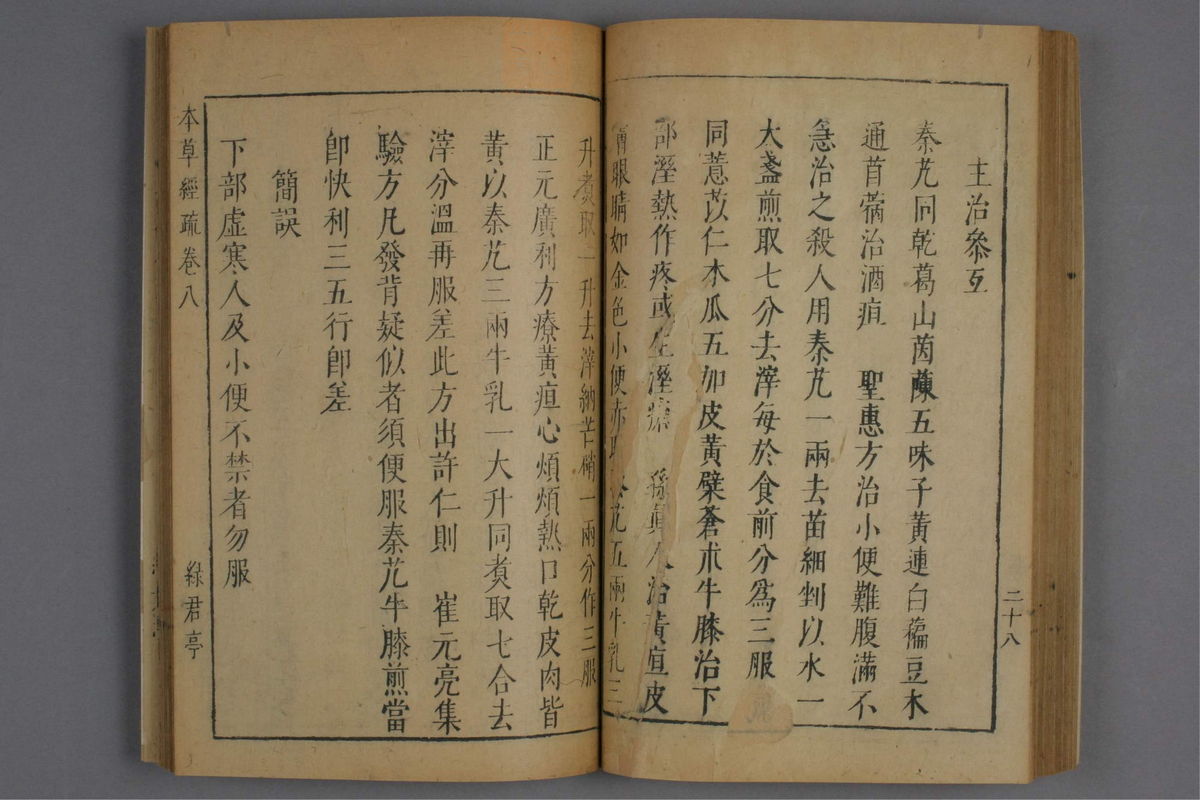 二十八
主治參互
秦艽同乾葛山茵蔯五味子黃連白藊豆木
通苜蓿治酒疸 聖惠方治小便難腹滿不
急治之殺人用秦艽一兩去苗細剉以水一
大盞煎取七分去滓每於食前分爲三服
同薏苡仁木瓜五加皮黃檗蒼朮牛膝治下
部溼熱作疼或生溼瘡 孫眞人治黃疸皮
膚眼睛如金色小便赤取秦艽五兩牛乳三
升煑取一升去滓納芒硝一兩分作三服
正元廣利方療黃疸心煩頰熱口乾皮肉皆
黃以秦艽三兩牛乳一大升同煑取七合去
滓分溫再服差此方出許仁則 崔元亮集
驗方凡發背疑似者須便服秦艽牛膝煎當
卽快利三五行卽差
簡誤
下部虛寒人及小便不禁者勿服
本草經疏卷八
綠君亭